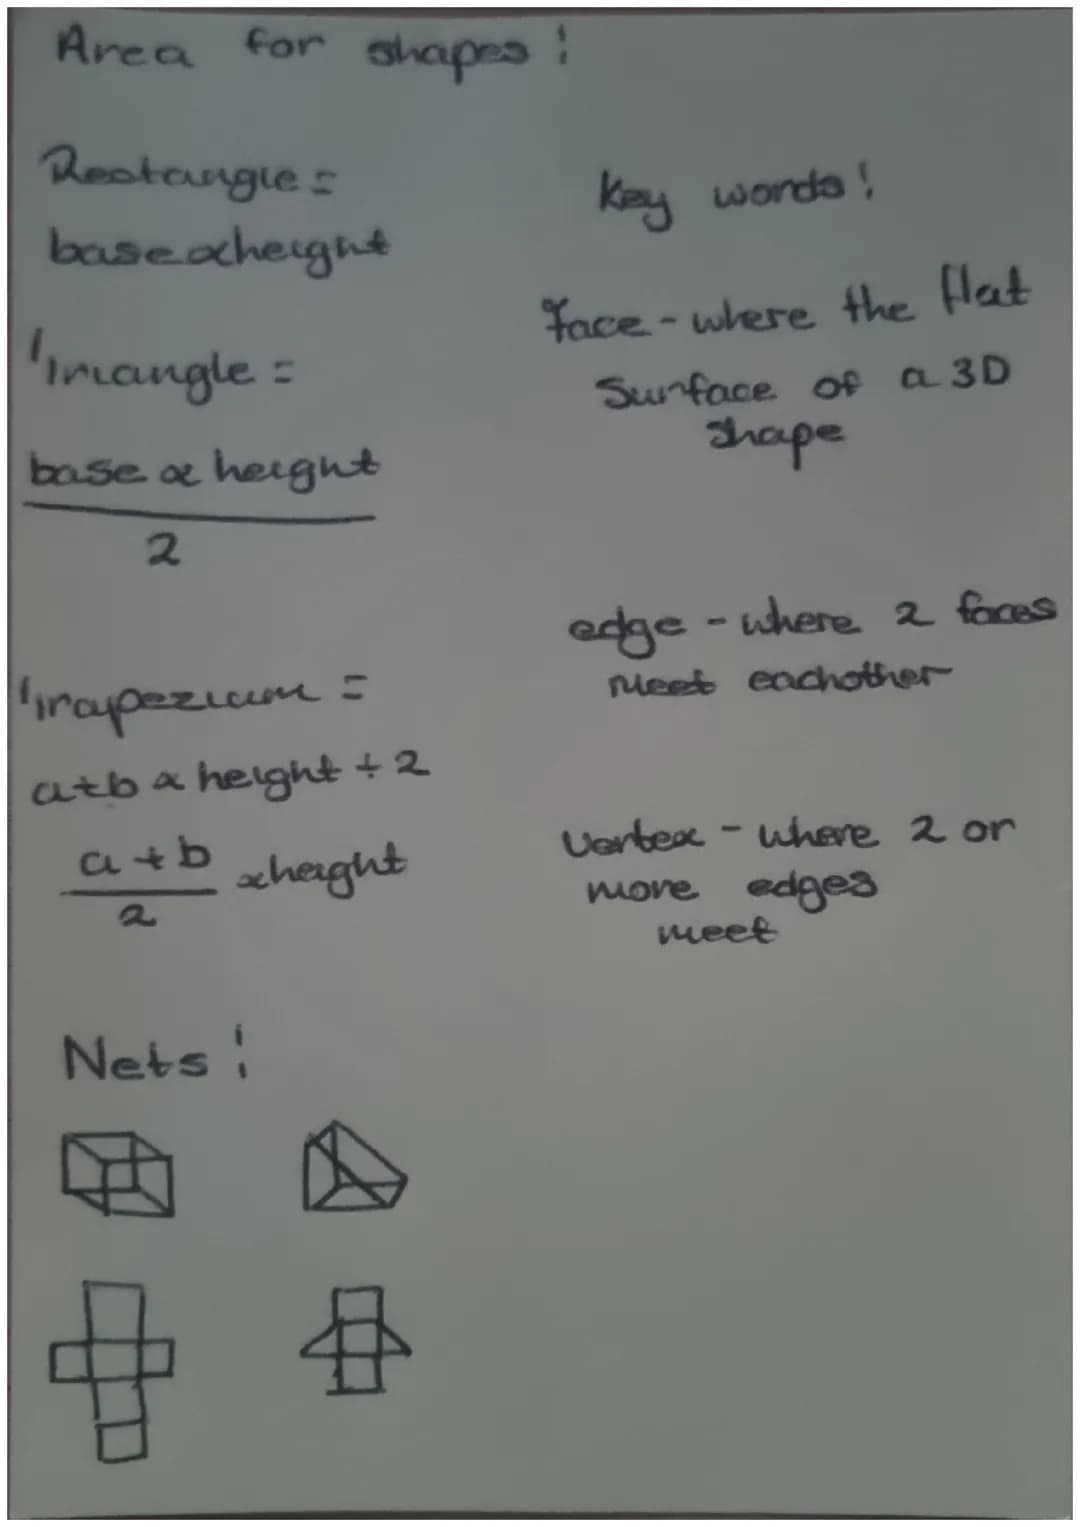 Area for shapes:
Rectangle =
base x height
Triangle =
base x height
2
Trapezium =
a+b x height ÷ 2
a + b
2
x height
Key words:
Face - where the flat
Surface of a 3D
shape
edge - where 2 faces
meet eachother
Vertex - where 2 or
more edges
meet
Nets: